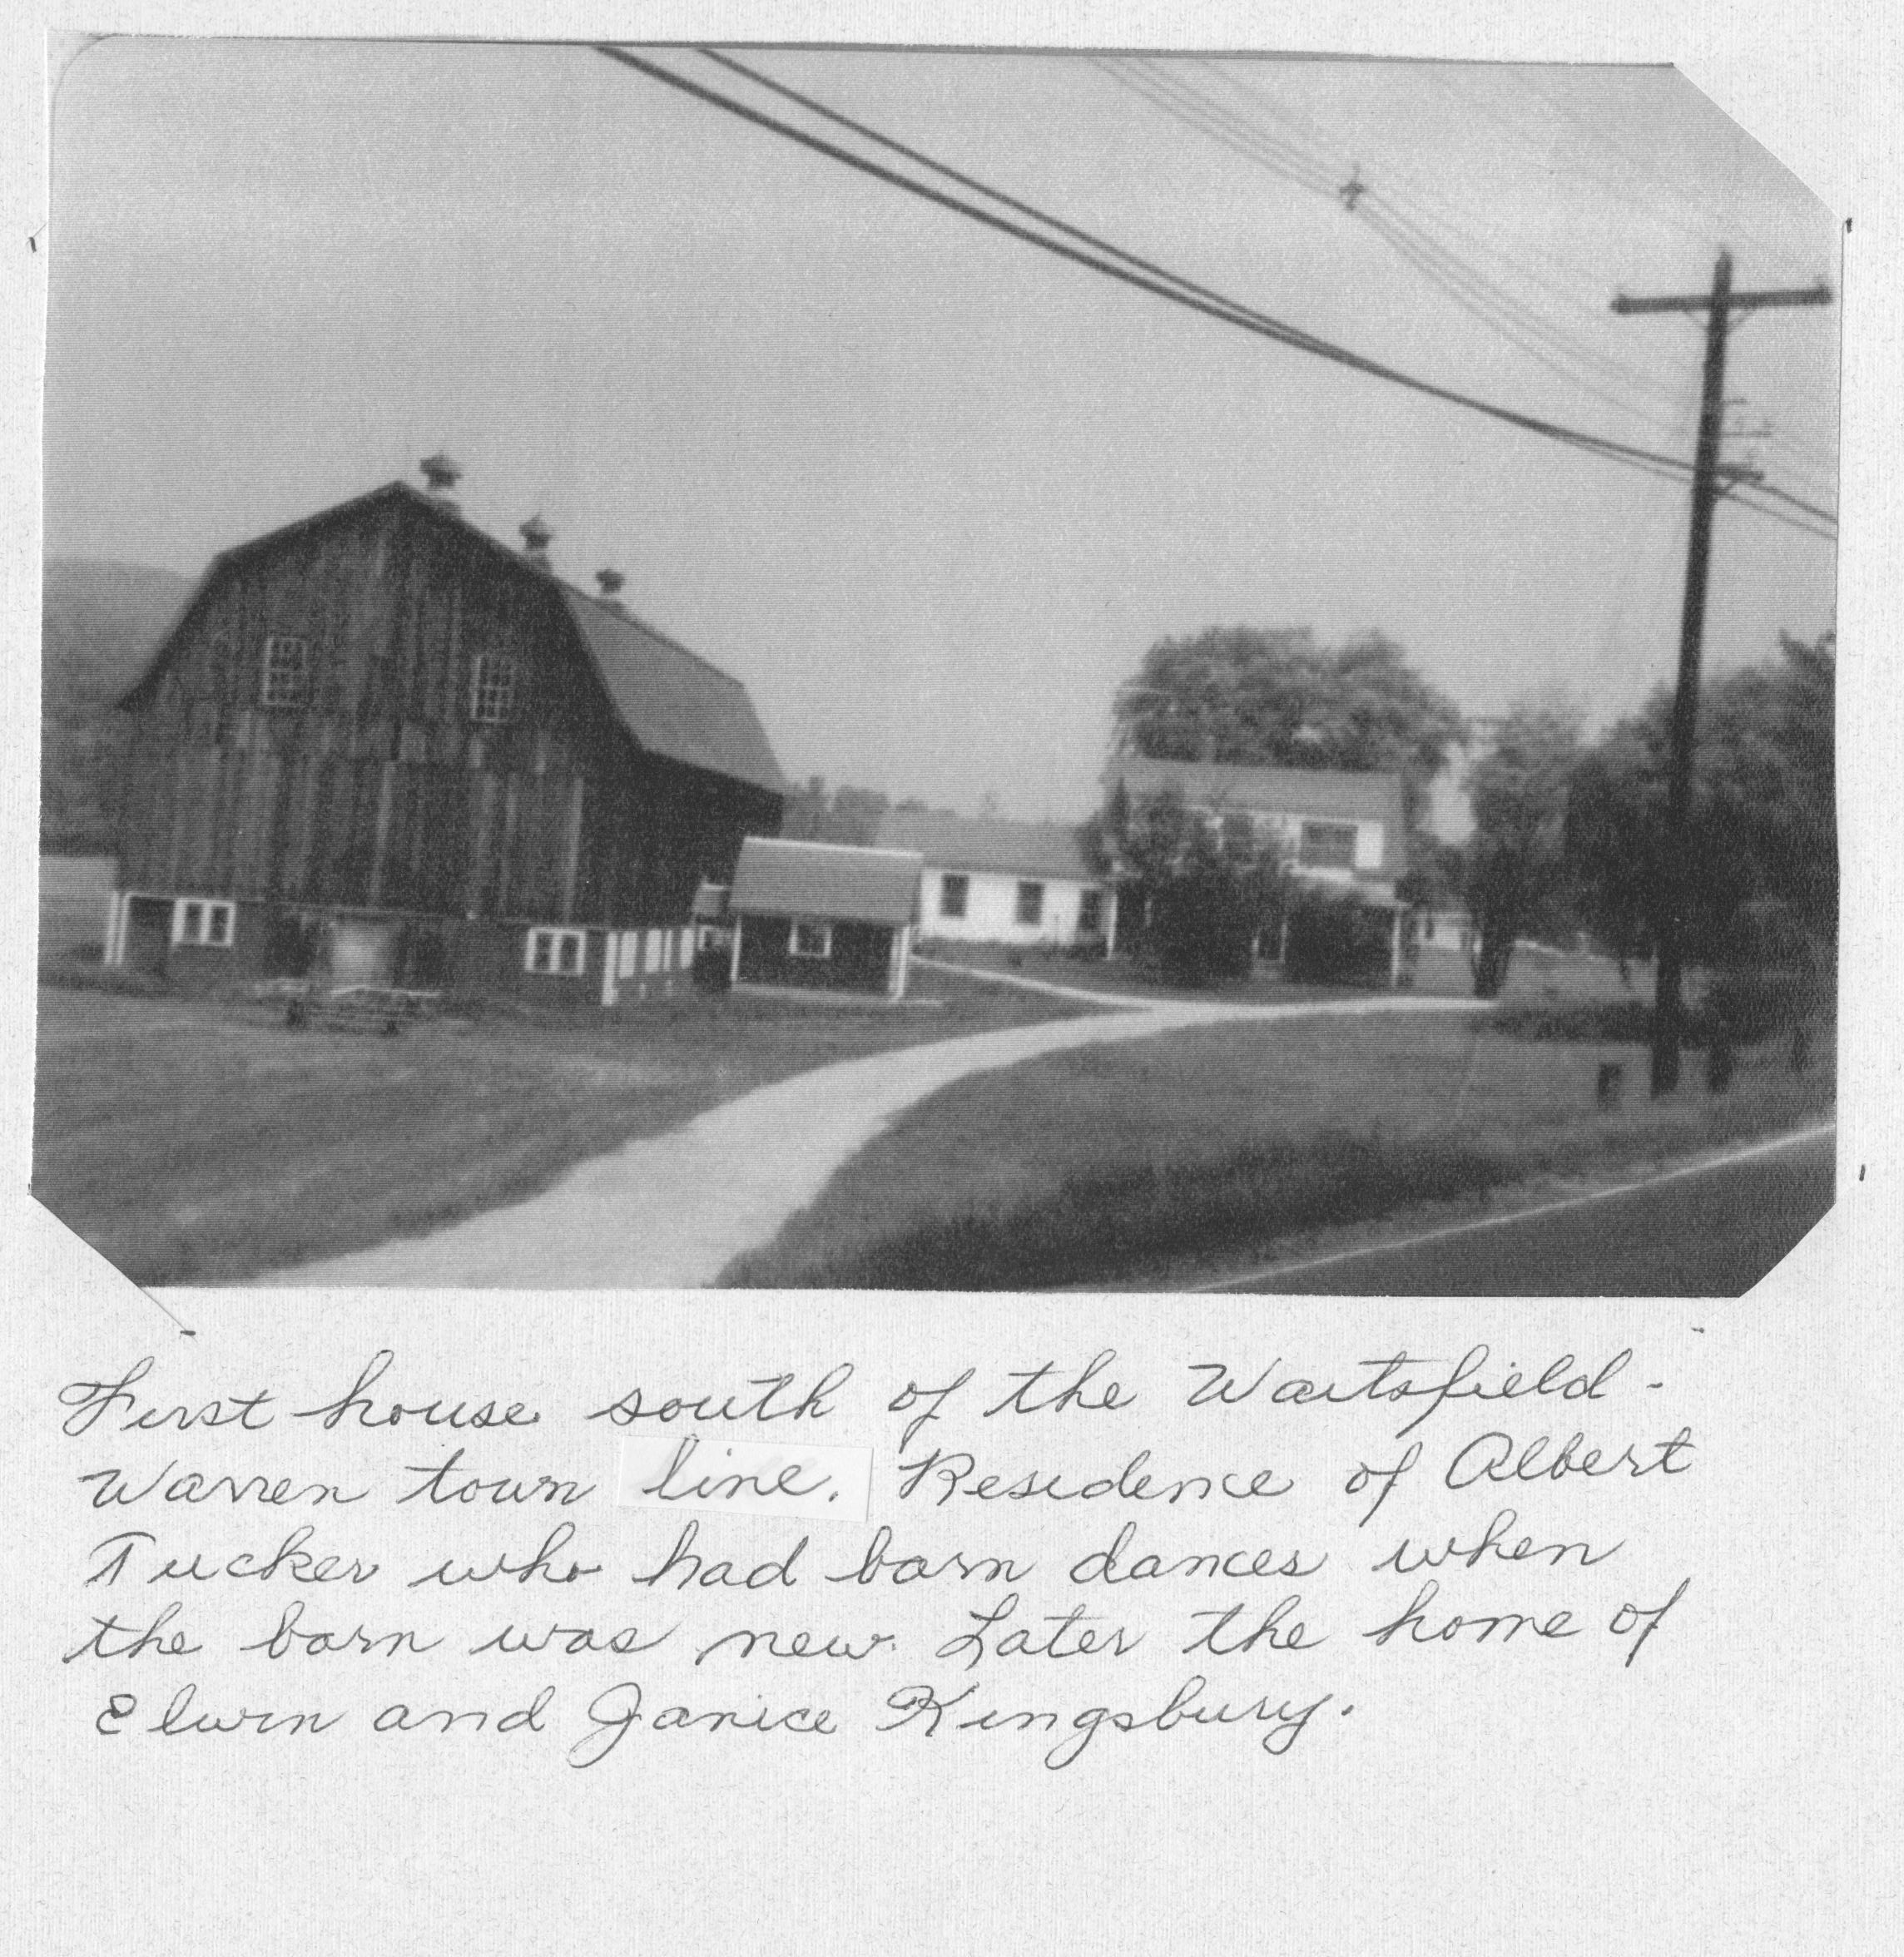 First house south of the Waitsfield-
Warren town line. Residence of Albert
Tucker who had barn dances when
the barn was new. Later the home of
Elwin and Janice Kingsbury.